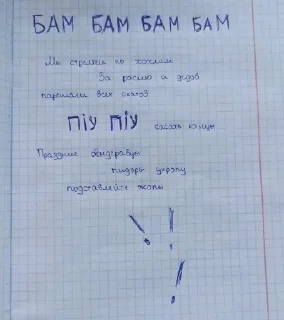 БАМ БАМ БАМ БАМ
Мы стреляли по хохлам
За расию и дедов
порешали всех скатов
ПІУ ПІУ сасать
Праздник бендеравцы
пидоры укропу
подставляйте жопы
! !
!